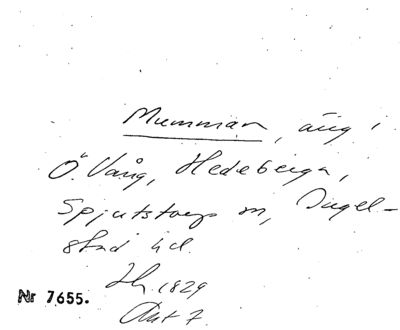 Mumman, äng i
Ö. Vång, Hedeberga,
Spjutstorps sn, Ingel-
stad hd.
Lh. 1829
Akt 7
Nr 7655.